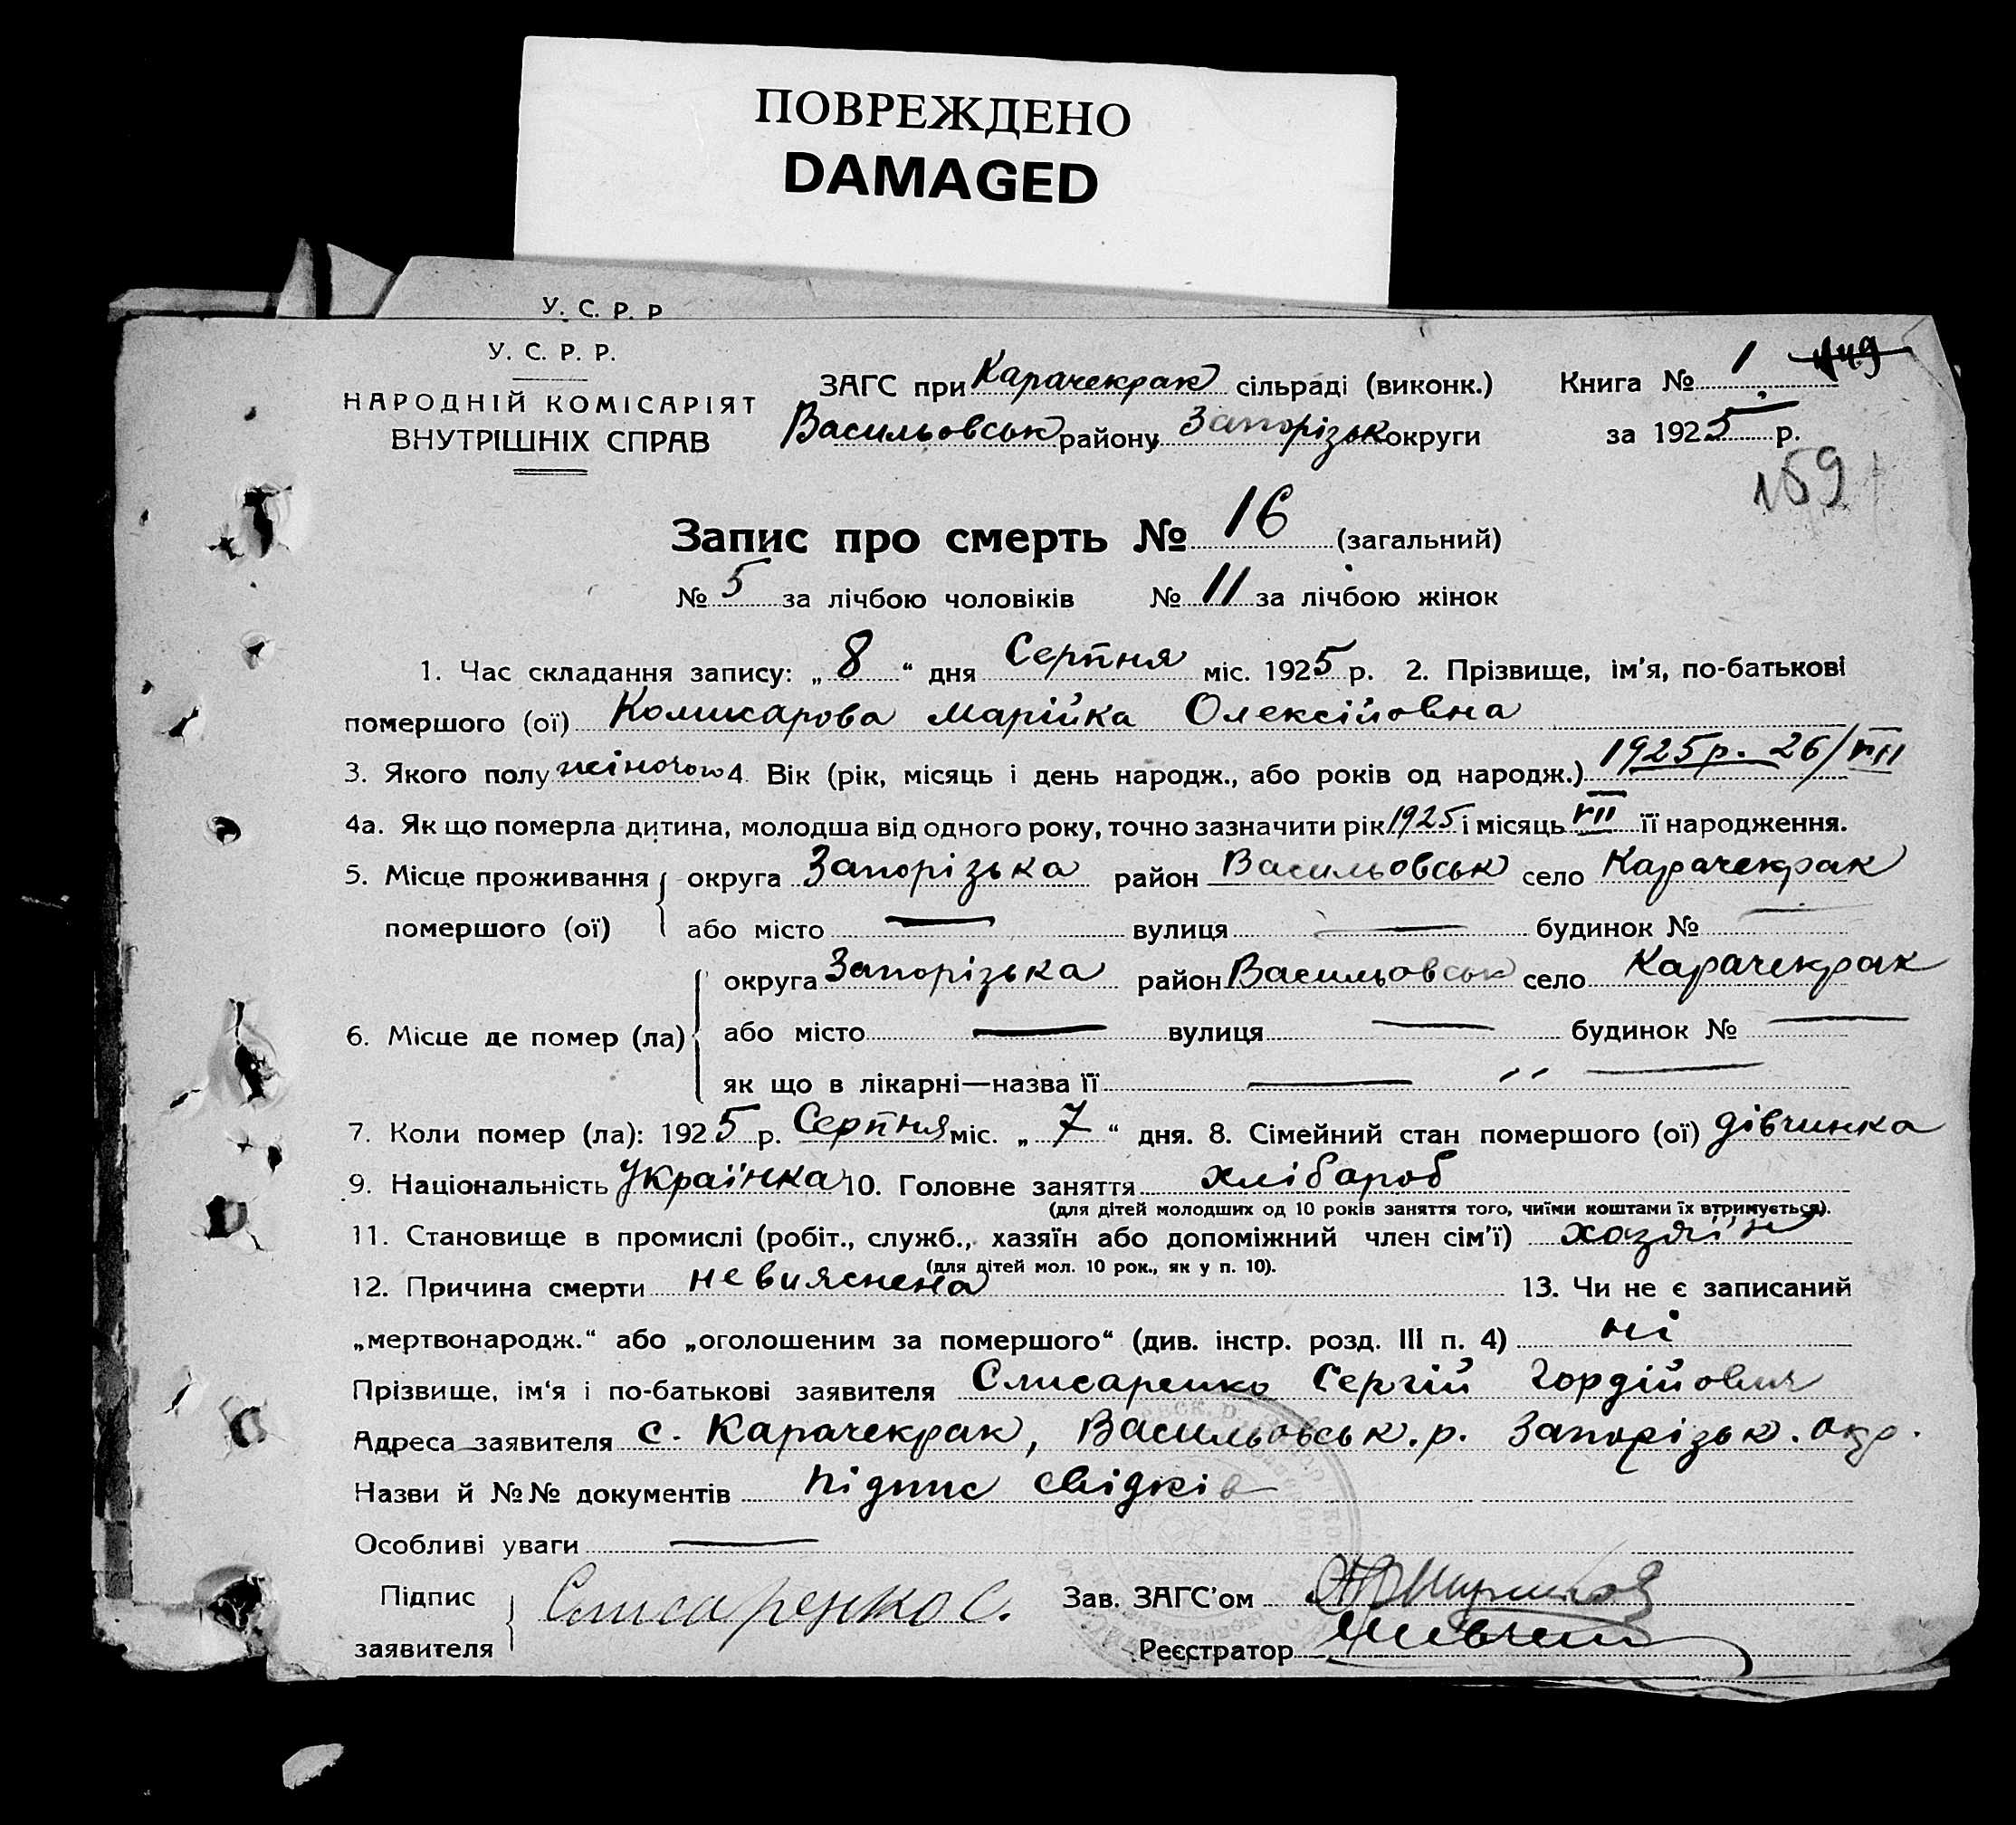 ПОВРЕЖДЕНО
DAMAGED
У. С. Р. Р
У. С. Р. Р.
НАРОДНІЙ КОМІСАРІЯТ
ВНУТРІШНІХ СПРАВ
ЗАГС при Карачекрак сільраді (виконк.) Книга № 1
Васильовськ району Запорізьк округи за 1925 р.
159
Запис про смерть № 16 (загальний)
№ 5 за лічбою чоловіків № 11 за лічбою жінок
1. Час складання запису: „ 8 “ дня Серпня міс. 1925 р. 2. Прізвище, ім'я, по-батькові
помершого (ої) Комисарова Марійка Олексійовна
3. Якого полу жіночого 4. Вік (рік, місяць і день народж., або років од народж.) 1925 р. 26/VII
4а. Як що померла дитина, молодша від одного року, точно зазначити рік 1925 і місяць VII її народження.
5. Місце проживання округа Запорізька район Васильовськ село Карачекрак
помершого (ої) або місто — вулиця — будинок № —
округа Запорізька район Васильовськ село Карачекрак
6. Місце де помер (ла) або місто — вулиця — будинок № —
як що в лікарні—назва її — ,, —
7. Коли помер (ла): 1925 р. Серпня міс. „ 7 “ дня. 8. Сімейний стан помершого (ої) дівчинка
9. Національність Українка 10. Головне заняття хлібароб
(для дітей молодших од 10 років заняття того, чиїми коштами їх втримується).
11. Становище в промислі (робіт., служб., хазяїн або допоміжний член сім'ї) хозяїн
(для дітей мол. 10 рок., як у п. 10).
12. Причина смерти невияснена 13. Чи не є записаний
„мертвонародж.“ або „оголошеним за помершого“ (див. інстр. розд. III п. 4) ні
Прізвище, ім'я і по-батькові заявителя Слисаренко Сергій Гордійович
Адреса заявителя с. Карачекрак, Васильовськ. р. Запорізьк. окр.
Назви й №№ документів підпис свідків
Особливі уваги —
Підпис Слисаренко С. Зав. ЗАГС'ом
заявителя Реєстратор